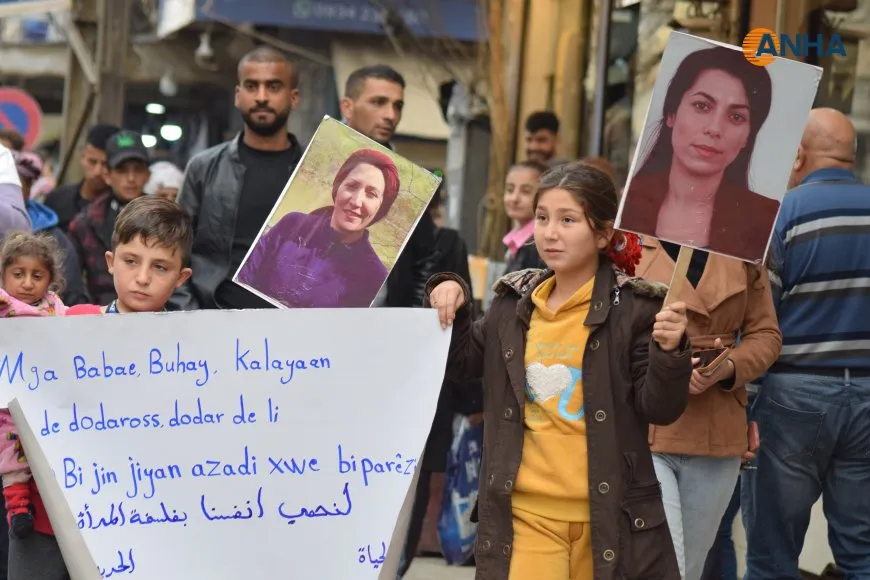 ANHA
0934 23
Mga Babae, Buhay, Kalayaan
de dodaross, dodar de li
Bi jin jiyan azadi xwe biparêzi
لنحمي انفسنا بفلسفة المرأة
الحياة